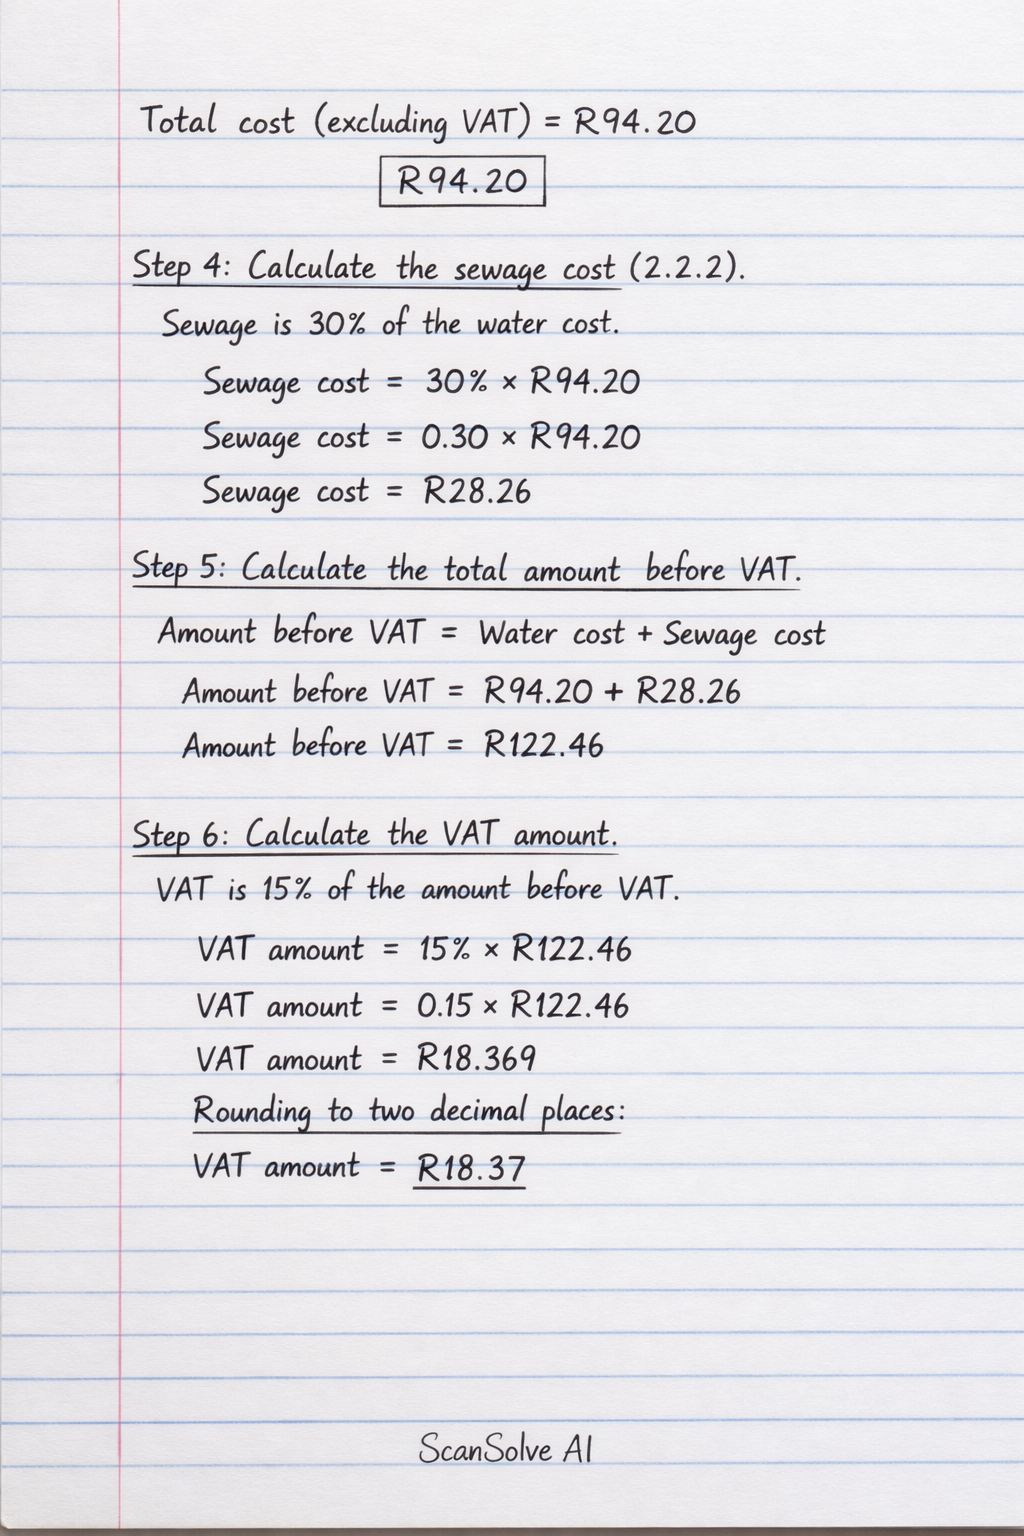 Total cost (excluding VAT) = R94.20
R94.20
Step 4: Calculate the sewage cost (2.2.2).
Sewage is 30% of the water cost.
Sewage cost = 30% × R94.20
Sewage cost = 0.30 × R94.20
Sewage cost = R28.26
Step 5: Calculate the total amount before VAT.
Amount before VAT = Water cost + Sewage cost
Amount before VAT = R94.20 + R28.26
Amount before VAT = R122.46
Step 6: Calculate the VAT amount.
VAT is 15% of the amount before VAT.
VAT amount = 15% × R122.46
VAT amount = 0.15 × R122.46
VAT amount = R18.369
Rounding to two decimal places:
VAT amount = R18.37
ScanSolve AI